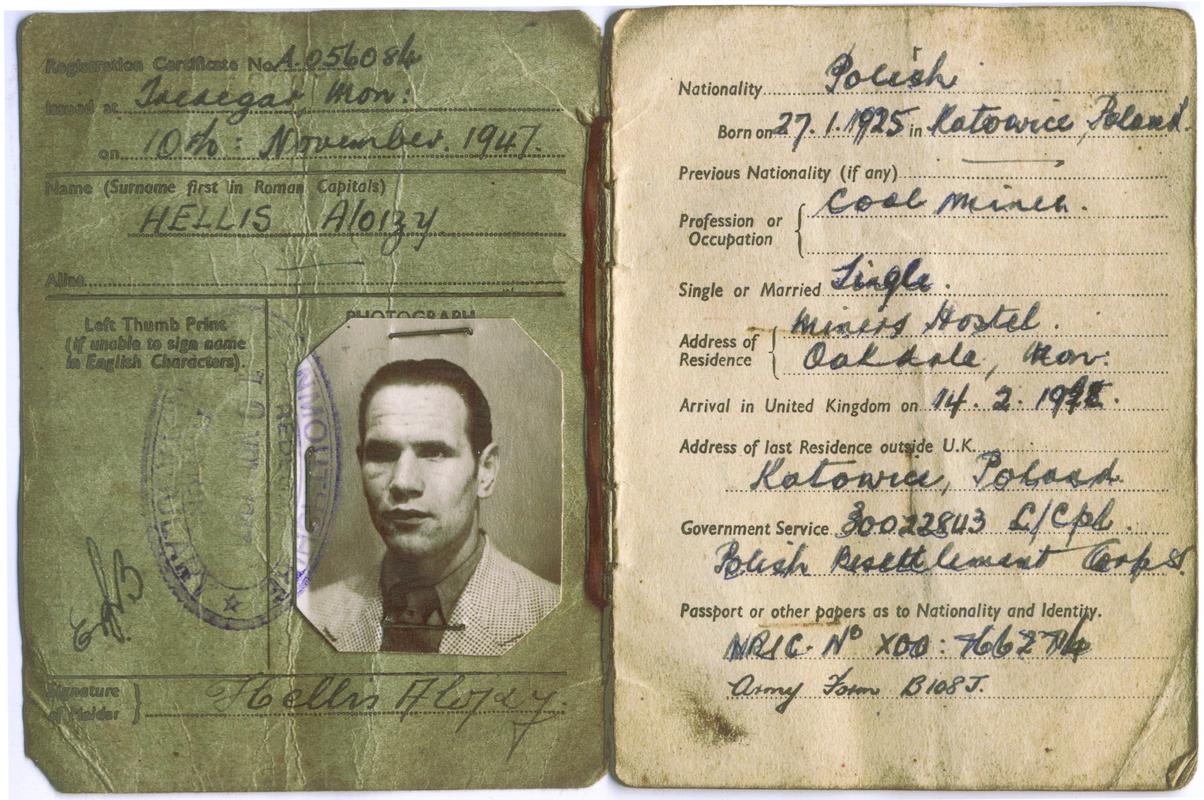 Registration Certificate No. A.056084
Issued at Tredegar, Mon:
on 10th: November. 1947.
Name (Surname first in Roman Capitals)
HELLIS Aloizy.
Alias
Left Thumb Print
(if unable to sign name
in English Characters).
PHOTOGRAPH
Signature
of Holder
Hellis Alojzy.
Nationality Polish
Born on 27.1.1925 in Katowice, Poland.
Previous Nationality (if any)
Profession or
Occupation
Coal Miner.
Single or Married Single.
Address of
Residence
Miners Hostel.
Oakdale, Mon:
Arrival in United Kingdom on 14. 2.
Address of last Residence outside U.K.
Katowice, Poland.
Government Service 30022843 L/Cpl.
Polish Resettlement Corps.
Passport or other papers as to Nationality and Identity.
NRIC. Nº XOO: 766274
Army Form B108J.